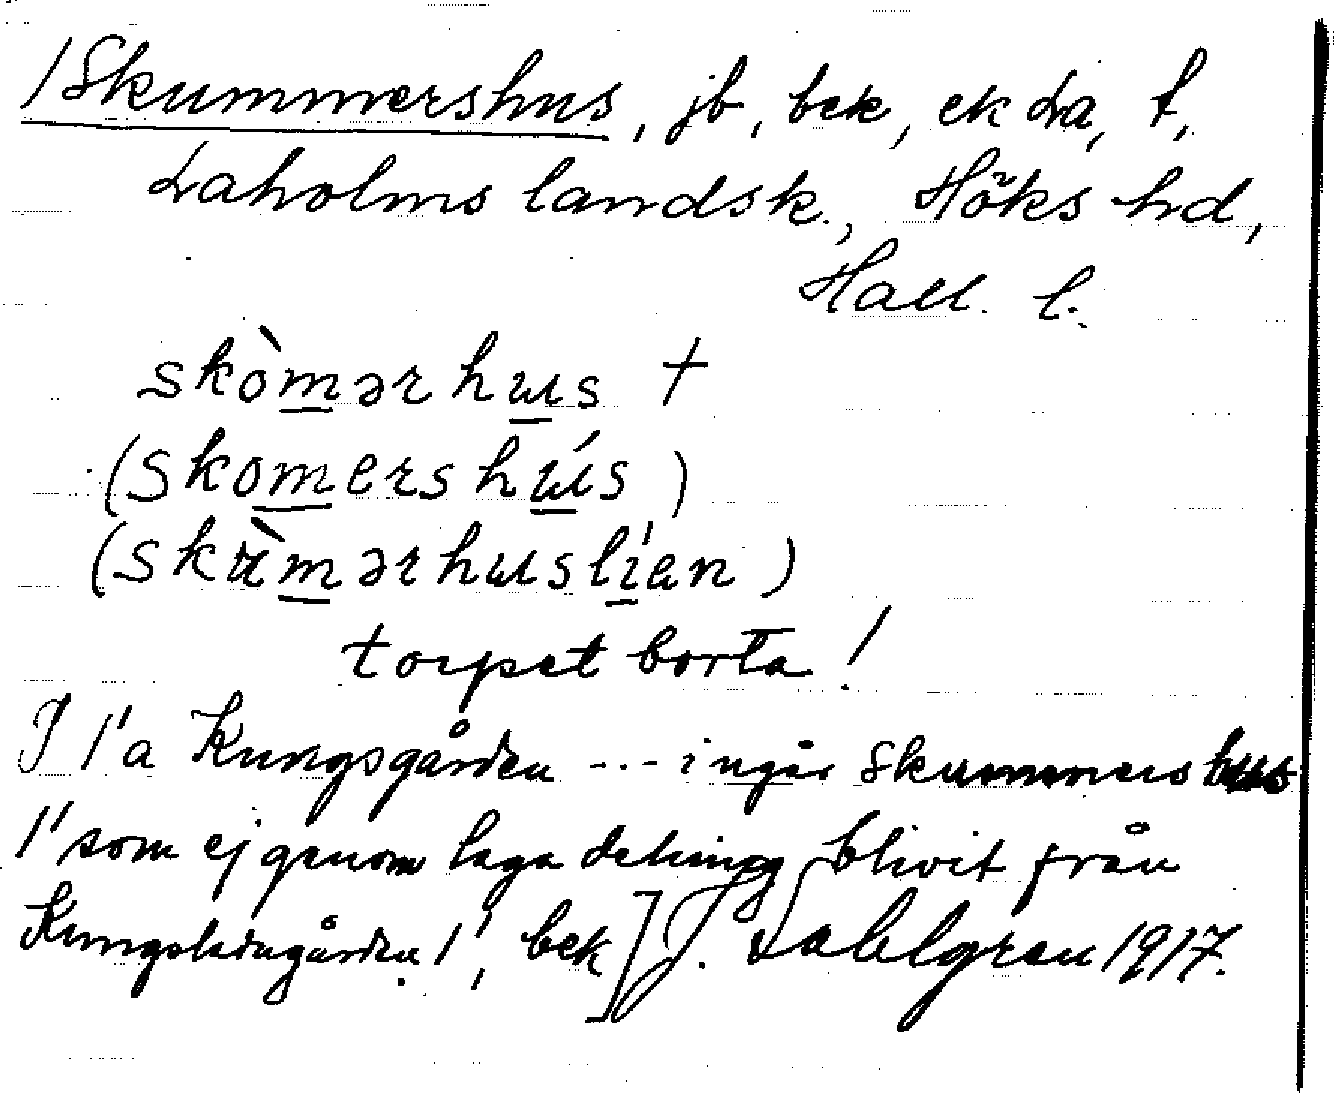 /Skummershus, jb, bek, ekLa, t,
Laholms landsk., Höks hd,
Hall. l.
skòmərhus +
(skomershús)
(skùmərhuslíen)
torpet borta!
I 1'a Kungsgården --- ingår Skummershus
1' som ej genom laga delning blivit från
Kungsladugården 1', bek] J. Sahlgren 1917.